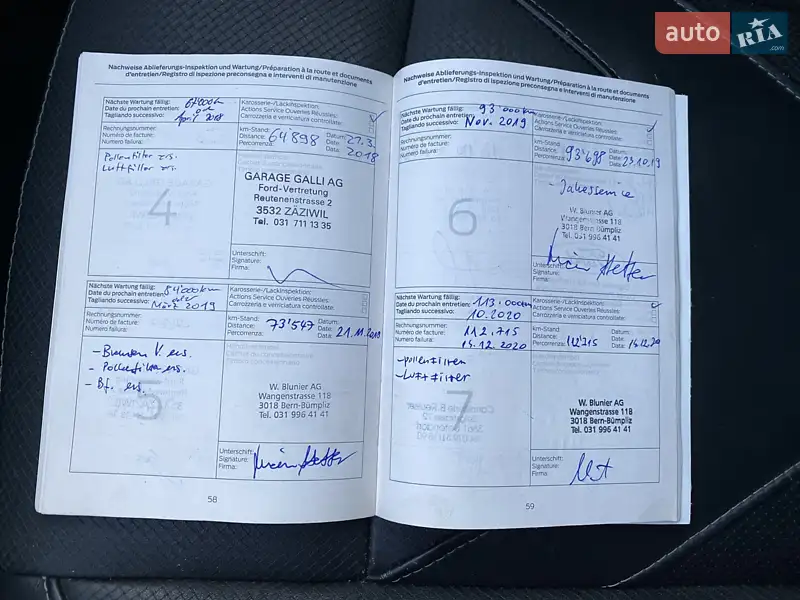 auto RIA.com
Nachweise Ablieferungs-Inspektion und Wartung/Préparation à la route et documents
d'entretien/Registro di ispezione preconsegna e interventi di manutenzione
Nächste Wartung fällig:
Date du prochain entretien:
Tagliando successivo: April 2018
Karosserie-/Lackinspektion:
Actions Service Ouvéries Réussies:
Carrozzeria e verniciatura controllate:
Rechnungsnummer:
Numéro de facture:
Numero failura:
km-Stand:
Distance: 64898
Percorrenza:
Datum:
Date:
Data: 2018
Pollenfilter ers.
Luftfilter ers.
4
GARAGE GALLI AG
Ford-Vertretung
Reutenenstrasse 2
3532 ZÄZIWIL
Tel. 031 711 13 35
Unterschrift:
Signature:
Firma:
Nächste Wartung fällig: 84000km
Date du prochain entretien: oder
Tagliando successivo: März 2019
Karosserie-/Lackinspektion:
Actions Service Ouvéries Réussies:
Carrozzeria e verniciatura controllate:
Rechnungsnummer:
Numéro de facture:
Numero failura:
km-Stand:
Distance: 73'547
Percorrenza:
Datum:
Date:
Data: 21.11.2018
- Bremsen V. ers.
- Pollenfilter ers.
- Bf. ers.
5
W. Blunier AG
Wangenstrasse 118
3018 Bern-Bümpliz
Tel. 031 996 41 41
Unterschrift:
Signature:
Firma:
58
Nachweise Ablieferungs-Inspektion und Wartung/Préparation à la route et documents
d'entretien/Registro di ispezione preconsegna e interventi di manutenzione
Nächste Wartung fällig: 93'000km
Date du prochain entretien:
Tagliando successivo: Nov. 2019
Karosserie-/Lackinspektion:
Actions Service Ouvéries Réussies:
Carrozzeria e verniciatura controllate:
Rechnungsnummer:
Numéro de facture:
Numero failura:
km-Stand:
Distance:
Percorrenza: 93'698
Datum:
Date:
Data: 23.10.19
- Jahresservice
6
W. Blunier AG
Wangenstrasse 118
3018 Bern-Bümpliz
Tel. 031 996 41 41
Unterschrift:
Signature:
Firma:
Nächste Wartung fällig:
Date du prochain entretien: 113.000km
Tagliando successivo: 10.2020
Karosserie-/Lackinspektion:
Actions Service Ouvéries Réussies:
Carrozzeria e verniciatura controllate:
Rechnungsnummer:
Numéro de facture: 112.715
Numero failura: 15.12.2020
km-Stand:
Distance:
Percorrenza: 112'715
Datum:
Date:
Data: 15.12.20
- Pollenfilter
- Luftfilter
7
W. Blunier AG
Wangenstrasse 118
3018 Bern-Bümpliz
Tel. 031 996 41 41
Unterschrift:
Signature:
Firma:
59